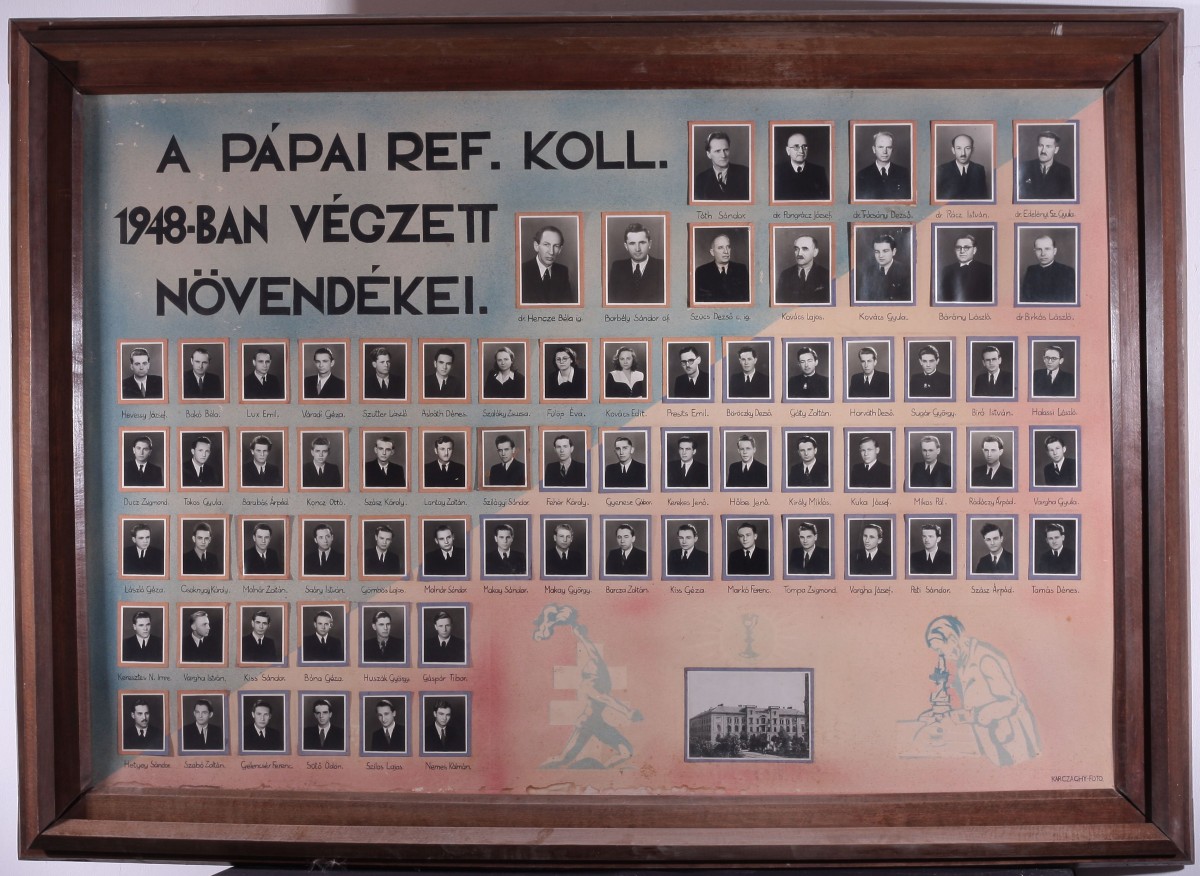 A PÁPAI REF. KOLL.
1948-BAN VÉGZETT
NÖVENDÉKEI.
Tóth Sándor. dr. Pongrácz József. dr. Trócsányi Dezső. dr. Rácz István. dr. Erdélyi Sz. Gyula.
dr. Hencze Béla ig. Borbély Sándor of. Szűcs Dezső c. ig. Kovács Lajos. Kovács Gyula. Bárány László. dr. Birkás László.
Hevessy József. Bakó Béla. Lux Emil. Váradi Géza. Szutter László Asbóth Dénes. Szalóky Zsuzsa. Fülöp Éva. Kovács Edit. Prests Emil. Baráczky Dezső. Góty Zoltán. Horváth Dezső. Sugár György. Bíró István. Halassi László.
Ducz Zsigmond. Takos Gyula. Barabás Árpád. Koncz Ottó. Szász Károly. Lontay Zoltán. Szilágyi Sándor. Fehér Károly. Gyenese Gábor. Kerekes Jenő. Hőbe Jenő. Király Miklós. Kuka József. Mikos Pál. Rádóczy Árpád. Vargha Gyula.
László Géza. Csoknyay Károly. Molnár Zoltán. Ságry István. Gömbös Lajos. Molnár Sándor. Makay Sándor. Makay György. Barcza Zoltán. Kiss Géza. Markó Ferenc. Tompa Zsigmond. Vargha József. Peti Sándor. Szász Árpád. Tamás Dénes.
Keresztes N. Imre. Vargha István. Kiss Sándor. Bóna Géza. Huszák György. Gáspár Tibor.
Hetyey Sándor. Szabó Zoltán. Gelencsér Ferenc. Süle Ödön. Szilas Lajos. Nemes Kálmán.
KARCZAGHY-FOTO.